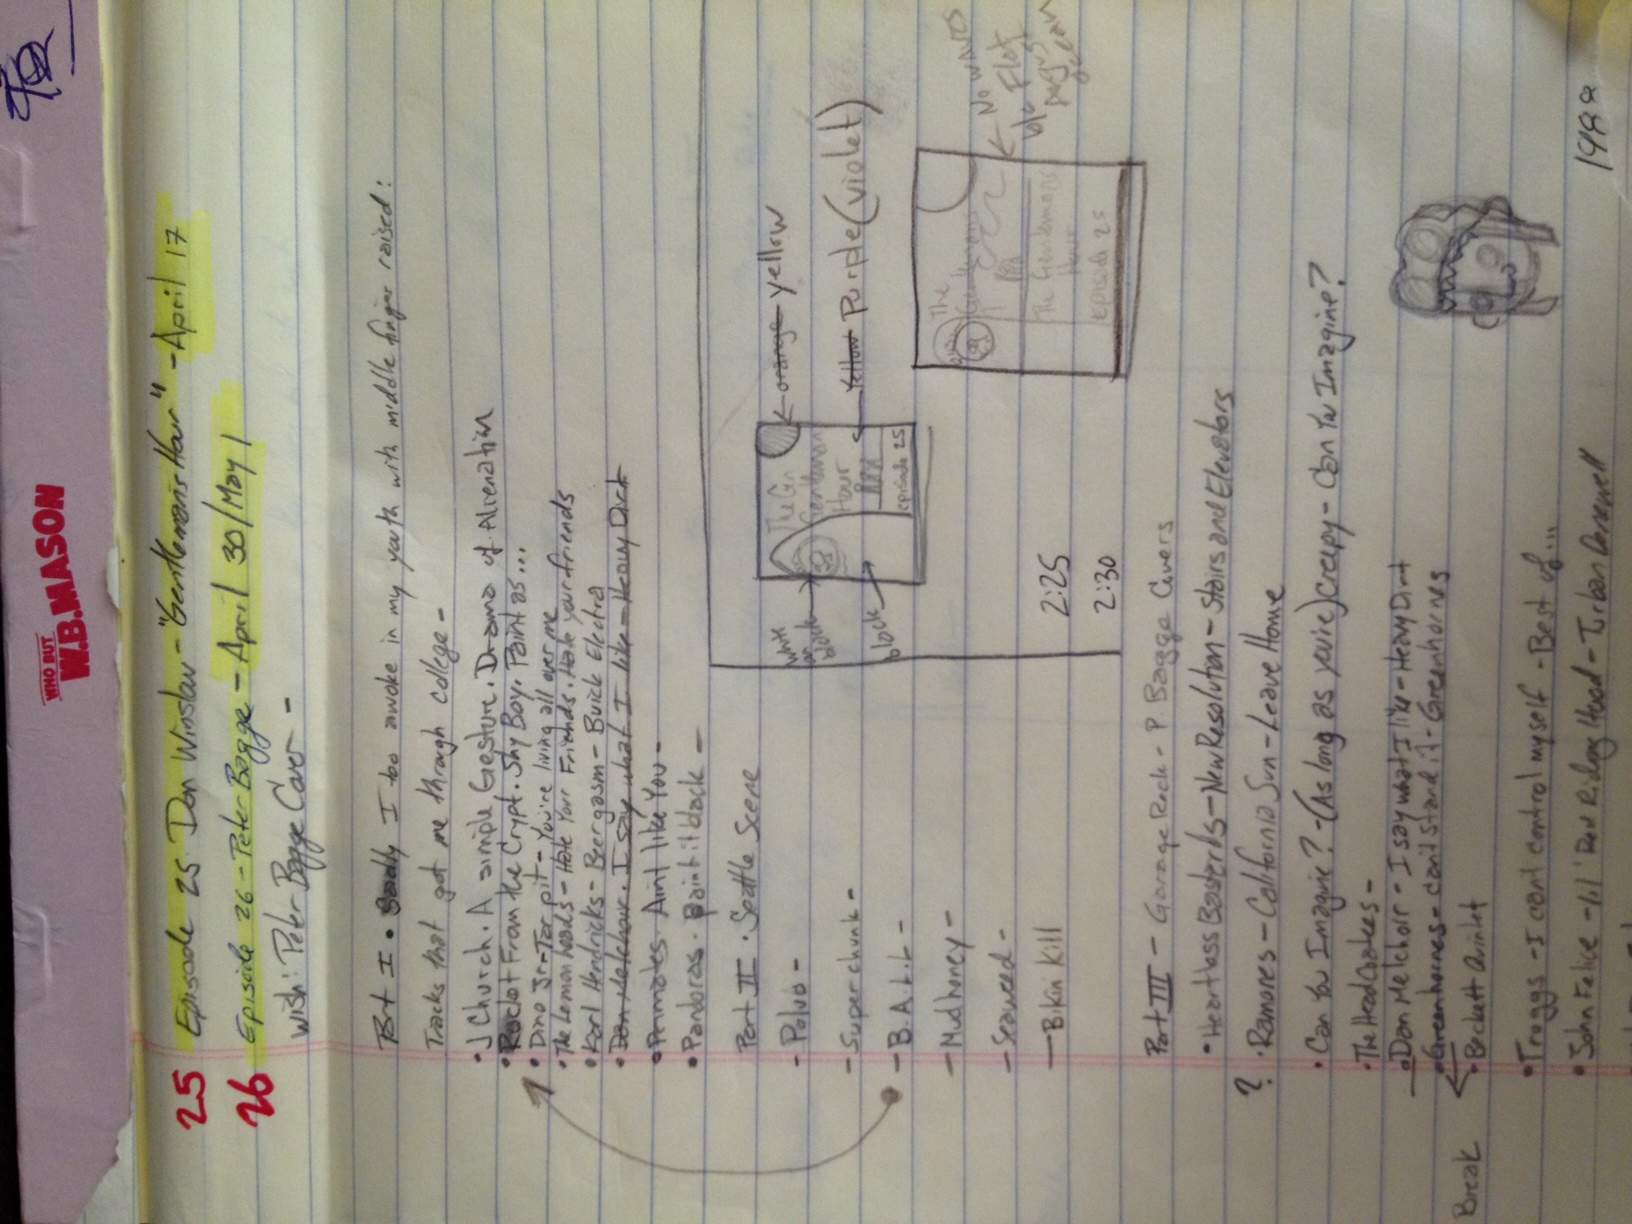 WHO BUT
W.B. MASON
25 Episode 25 Don Winslow - "Gentlemans Hour" - April 17
26 Episode 26 - Peter Bagge - April 30/May 1
Wish: Peter Bagge Cover -
Part I • Sadly I too awoke in my youth with middle finger raised:
Tracks that got me through college -
• J Church. A simple Gesture. Drama of Alienation
• Rocket From the Crypt. Shy Boy. Paint as...
• Dino Jr - Tar pit - You're living all over me
• The Lemonheads - Hate Your Friends. Hate your friends
• Karl Hendricks - Beergasm - Buick Electra
• Dan Melchoir. I say what I like - Heavy Dirt
• Primates - Aint like You -
• Pandoras - Paint it black -
Part II • Seattle Scene
- Polvo -
- Superchunk -
- B.A.L.L -
- Mudhoney -
- Seaweed -
- Bikini Kill
2:25
2:30
The Gen
Gentlemans
Hour
episode 25
← orange yellow
yellow Purple (violet)
White
on
black →
black →
The
Gentlemans
Hour
The Gentlemans
Hour
episode 25
← No waves
b/c Flat
ocean
Part III - Garage Rock - P Bagge Covers
• Heartless Bastards - New Resolution - Stairs and Elevators
? • Ramones - California Sun - Leave Home
• Can You Imagine? - (As long as you're) Creepy - Can You Imagine?
• The Headcoatees -
• Dan Melchoir - I say what I like - Heavy Dirt
• Greenhornes - can't stand it - Greenhornes
Break
• Beckett
• Troggs - I cant control myself - Best of...
• John Felice - lil' Red Riding Hood -
1988